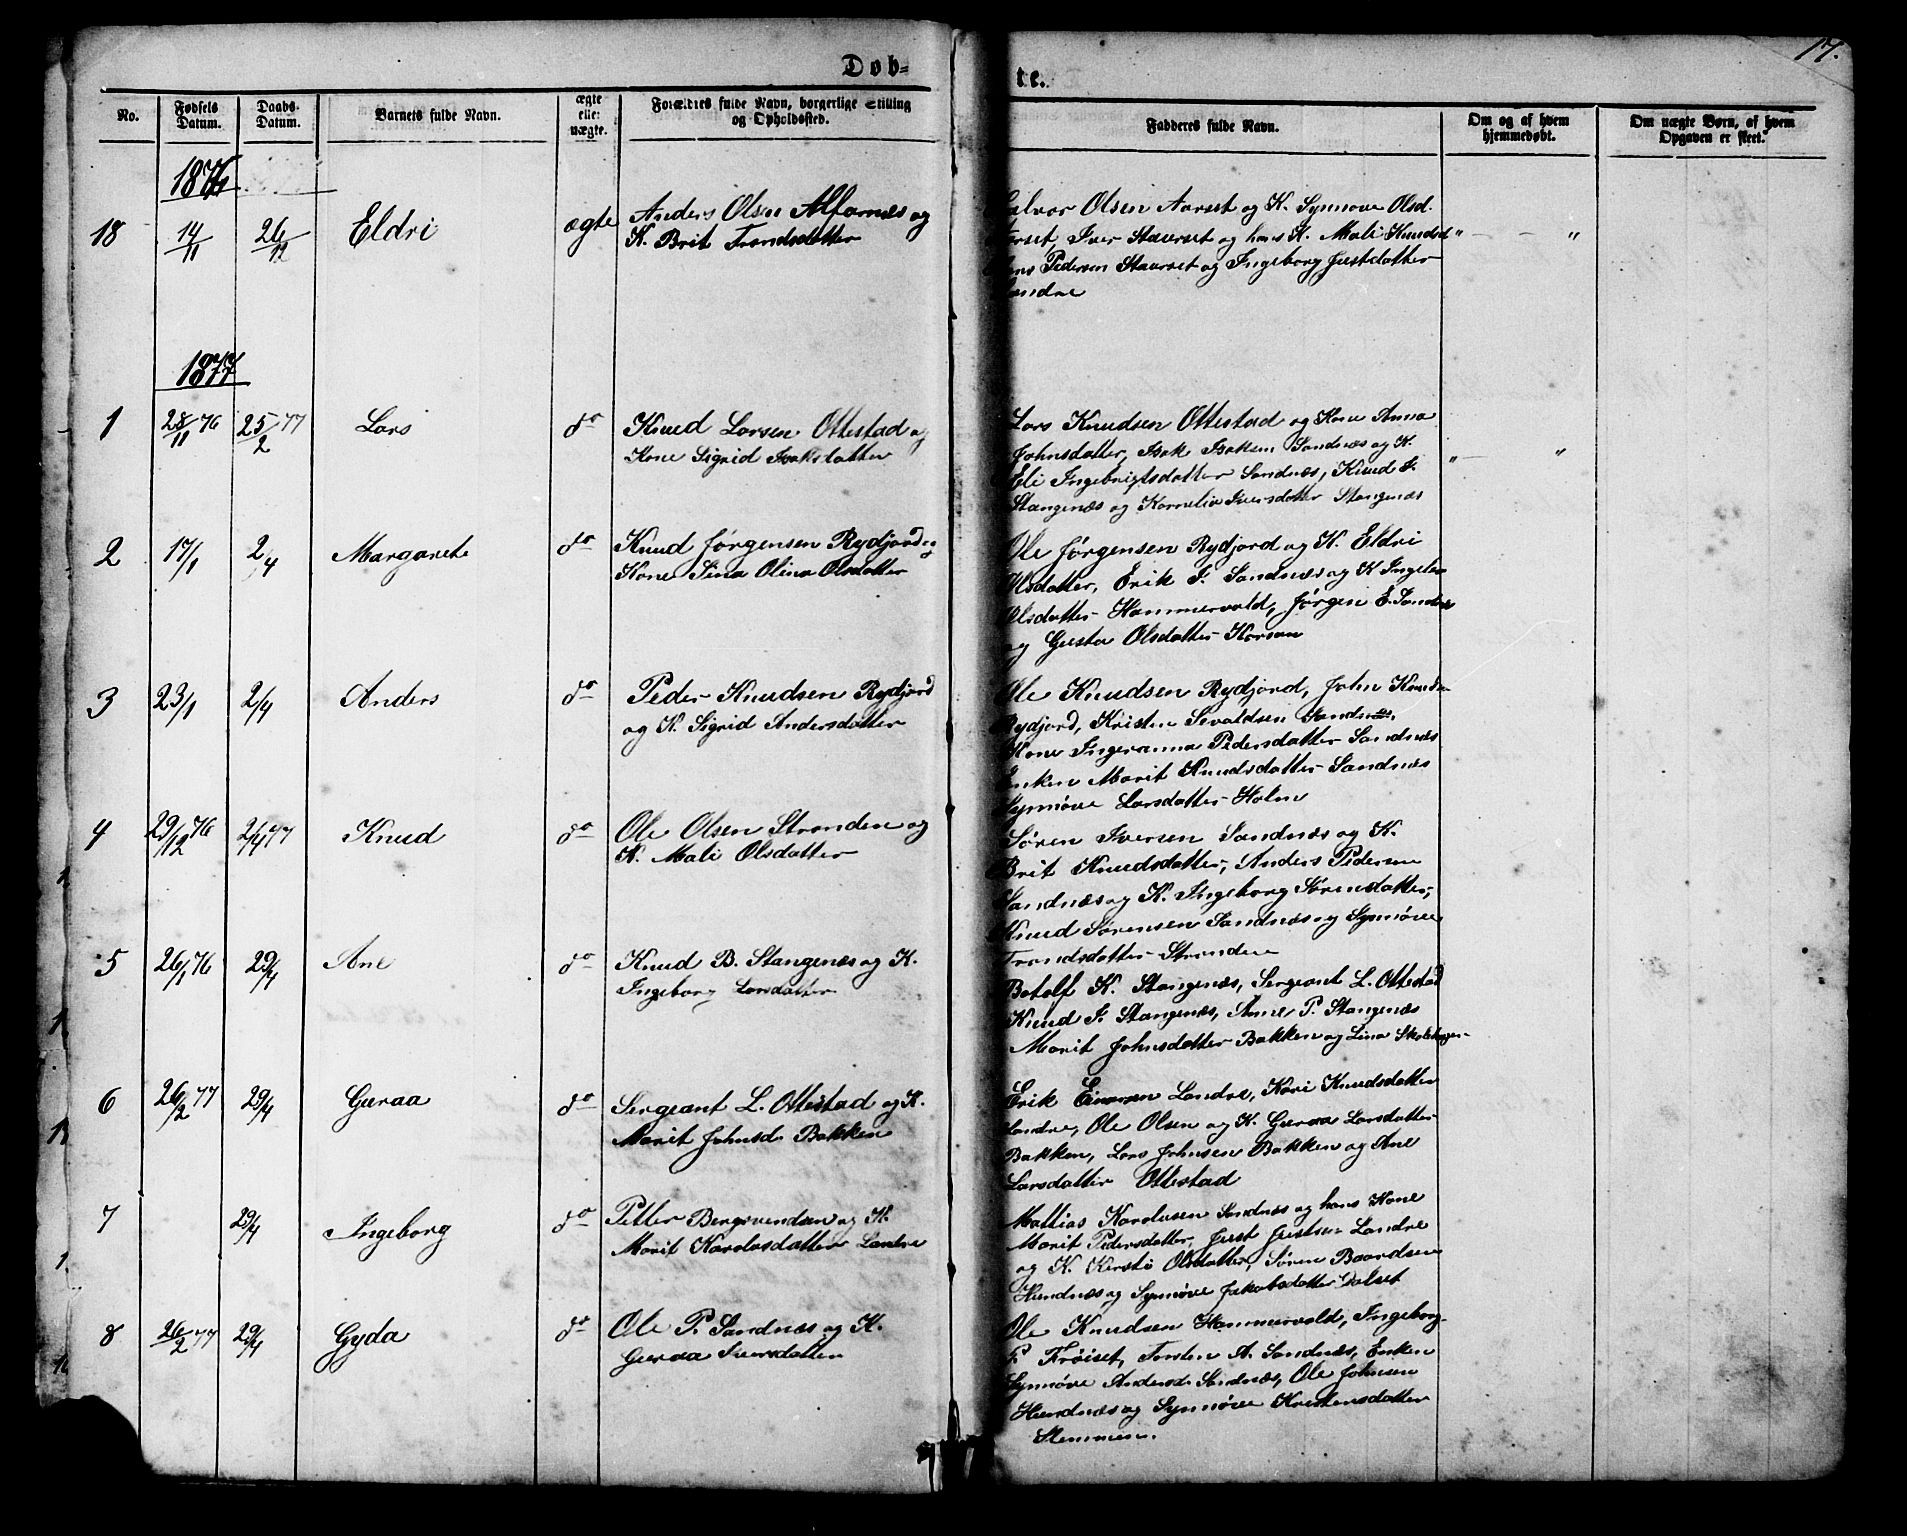 17.
Døb=
te.
No.
Fødsels Datum.
Daabs-Datum.
Barnets fulde Navn.
ægte elle: uægte.
Forældres fulde Navn, borgerlige Stilling og Opholdssted.
Fadderes fulde Navn.
Om og af hvem hjemmedøbt.
Om uægte Børn, af hvem Opgaven er skeet.
1876
18 14/11 26/12 Eldri ægte Anders Olsen Alfarnæs og
K. Brit Trondsdatter
Halvor Olsen Aarset og K. Synnøve Olsd.
Aarset, Iver Staurset og hans K. Mali Knudsd " — — "
Hans Pedersen Staurset og Ingeborg Justdatter
Landre
1877
1 28/11 76 25/2 77 Lars do Knud Larsen Ottestad og
Kone Sigrid Isaksdatter
Lars Knudsen Ottestad og Kone Anna
Johnsdatter, Isak Isaksen Sandnæs og K.
Eli Ingebrigtsdatter Sandnæs, Knud I. " — "
Stangenæs og Kornelia Iversdatter Stangenæs
2 17/1 2/4 Margarete do Knud Jørgensen Rydjord og
Kone Sina Olina Olsdatter
Ole Jørgensen Rydjord og K. Eldri
Olsdatter, Erik I. Sandnæs og K Ingebor
Olsdatter Hammervold, Jørgen E. Sandnæs
og Gusta Olsdatter Korsan
3 23/1 2/4 Anders do Peder Knudsen Rydjord
og K. Sigrid Andersdatter
Ole Knudsen Rydjord, John Knuds.
Rydjord, Kristen Sevaldsen Sandnæs,
Kone Ingeranna Pedersdatter Sandnæs
Enken Marit Knudsdatter Sandnæs
Synnøve Larsdatter Holm
4 29/12 76 2/4 77 Knud do Ole Olsen Stranden og
K. Mali Olsdatter
Søren Iversen Sandnæs og K.
Brit Knudsdatter, Anders Pedersen
Sandnæs og K. Ingeborg Sørensdatter,
Knud Sørensen Sandnæs og Synnøve
Trondsdatter Stranden
5 26/1 76 29/4 Ane do Knud B. Stangenæs og K.
Ingeborg Larsdatter
Botolf K. Stangenæs, Sergeant L. Ottestad
Knud I. Stangenæs, Anne P. Stangenæs
Marit Johnsdatter Bakken og Lina Skolehagen
6 26/2 77 29/4 Guraa do Sergeant L. Ottestad og K.
Marit Johnsd. Bakken
Erik Einarsen Landre, Kari Knudsdatter
Landre, Ole Olsen og K. Guraa Larsdatter
Bakken, Lars Johnsen Bakken og Ane
Larsdatter Ottestad
7 29/4 Ingeborg do Petter Bergsvendsen og K.
Marit Karolusdatter Landre
Mattias Karolusen Sandnæs og hans Kone
Marit Pedersdatter, Just Justsen Landre
og K. Kersti Olsdatter, Søren Baardsen
Hundnæs og Synnøve Jakobsdatter Dalset
8 26/2 77 29/4 Gyda do Ole P. Sandnæs og K.
Guraa Iversdatter
Ole Knudsen Hammervold, Ingeborg
P. Frøiset, Torsten A. Sandnæs, Enken
Synnøve Andersd. Sandnæs, Ole Johnsen
Hundnæs og Synnøve Kristensdatter
Stemmen.